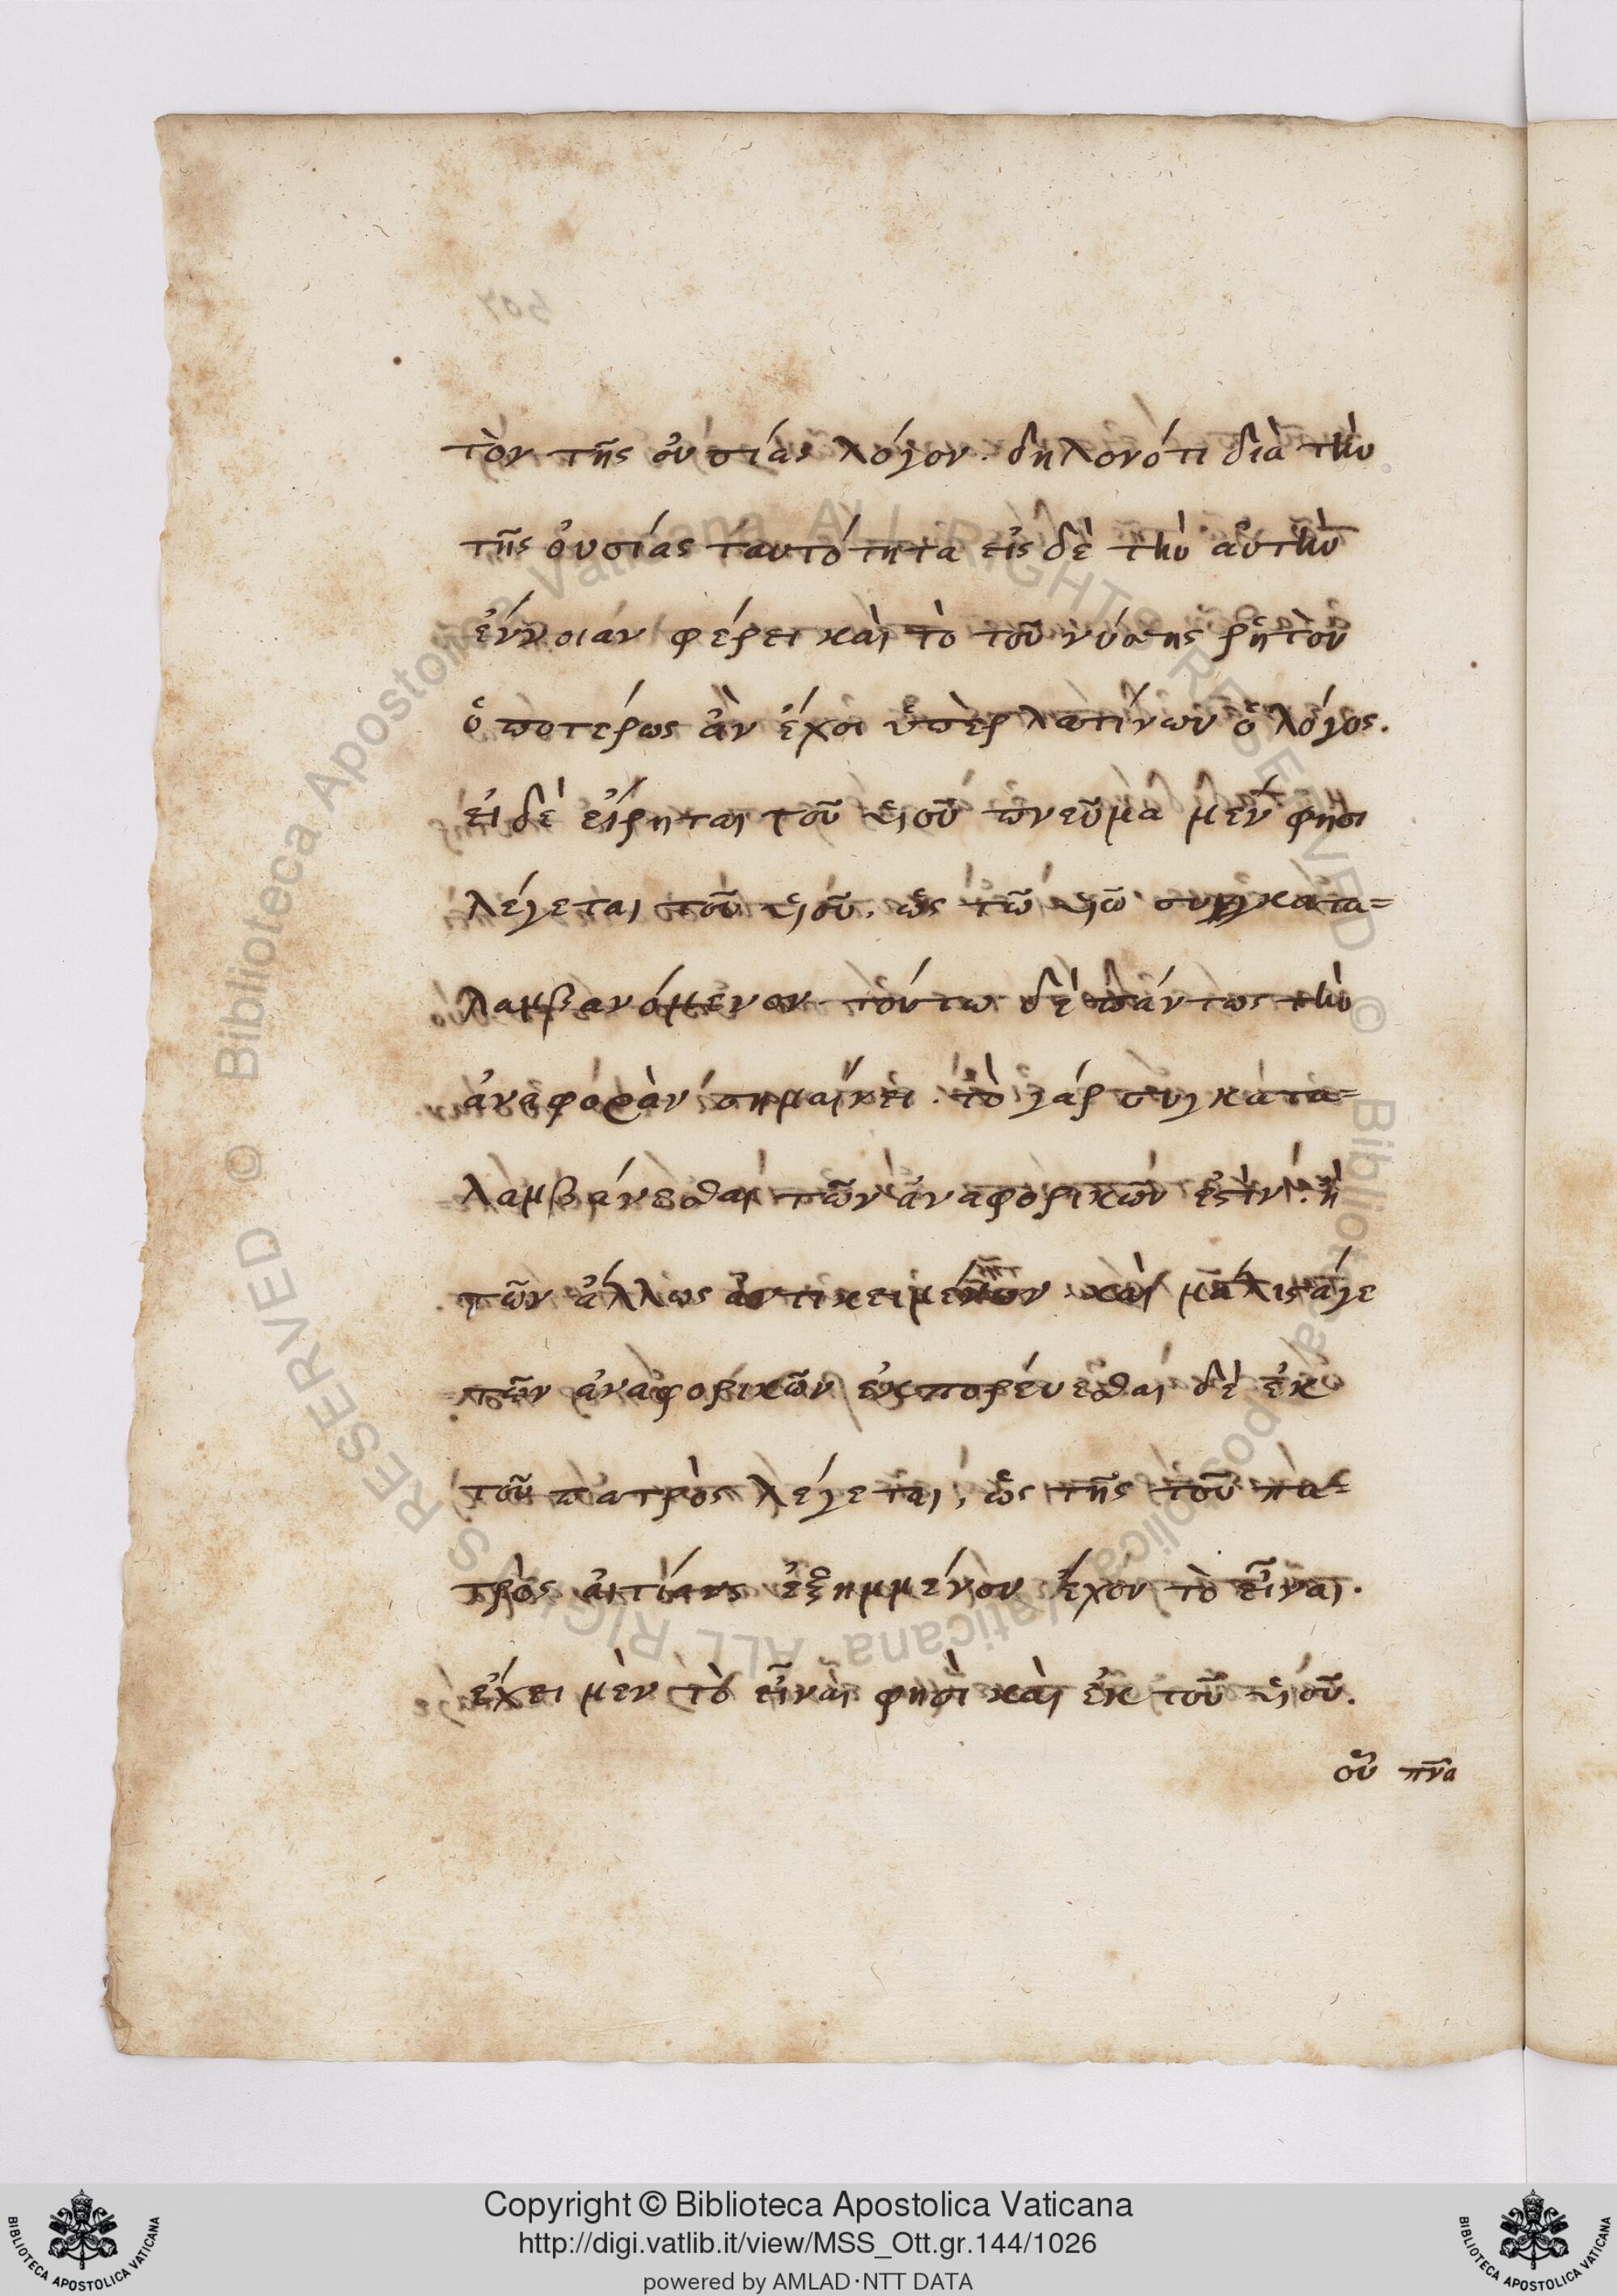 τὸν τῆς οὐσίας λόγον. δηλονότι διὰ τὴν
τῆς οὐσίας ταυτότητα εἰς δὲ τὴν αὐτὴν
ἔννοιαν φέρει καὶ τὸ τοῦ νύσης ῥητὸν
ὁποτέρως ἂν ἔχοι ὑπὲρ λατίνων ὁ λόγος.
εἰ δὲ εἴρηται τοῦ υἱοῦ πνεῦμα μέν φησι
λέγεται τοῦ υἱοῦ. ὡς τῶ υἱῶ συγκατα=
λαμβανόμενον τούτω δὲ πάντως τὴν
ἀναφορὰν σημαίνει. τὸ γάρ συγκατα=
λαμβάνεσθαι τῶν ἀναφορικῶν ἐστὶν. ἢ
τῶν ἄλλως ἀντικειμένων καὶ μάλιστάγε
τῶν ἀναφορικῶν ἐκπορέυεσθαι δὲ ἐκ
τοῦ πατρὸς λέγεται, ὡς τῆς τοῦ πα=
τρὸς αἰτίας ἐξημμένον ἔχον τὸ εἶναι.
ἔχει μὲν τὸ εἶναι φησὶ καὶ ἐκ τοῦ υἱοῦ.
οὗ πνα
Copyright © Biblioteca Apostolica Vaticana
http://digi.vatlib.it/view/MSS_Ott.gr.144/1026
powered by AMLAD·NTT DATA
BIBLIOTECA APOSTOLICA VATICANA
BIBLIOTECA APOSTOLICA VATICANA
© Biblioteca Apostolica Vaticana ALL RIGHTS RESERVED © Biblioteca Apostolica Vaticana ALL RIGHTS RESERVED